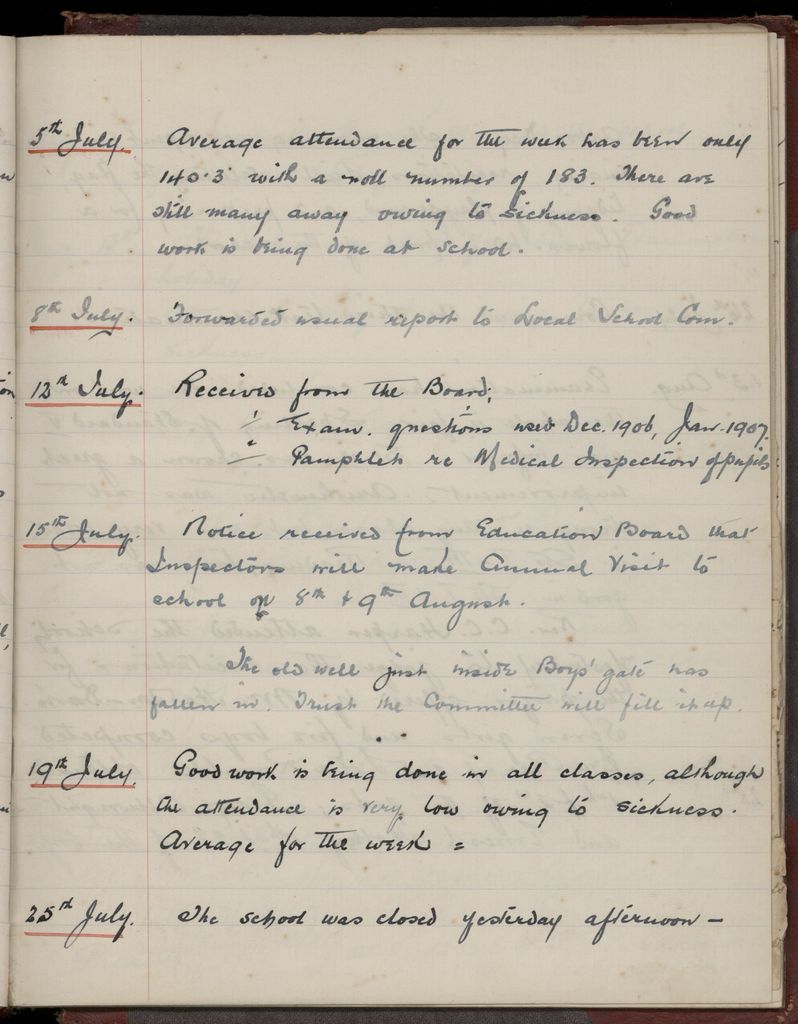 5th July. Average attendance for the week has been only
140.3 with a roll number of 183. There are
still many away owing to sickness. Good
work is being done at school.
8th July. Forwarded usual report to Local School Com.
12th July. Received from the Board;
1/ Exam. questions used Dec. 1906, Jan. 1907.
2/ Pamphlet re Medical Inspection of pupils
15th July. Notice received from Education Board that
Inspectors will make Annual Visit to
school on 8th & 9th August.
The old well just inside Boys' gate has
fallen in. Trust the Committee will fill it up.
19th July. Good work is being done in all classes, although
the attendance is very low owing to sickness.
Average for the week =
25th July. The school was closed yesterday afternoon –